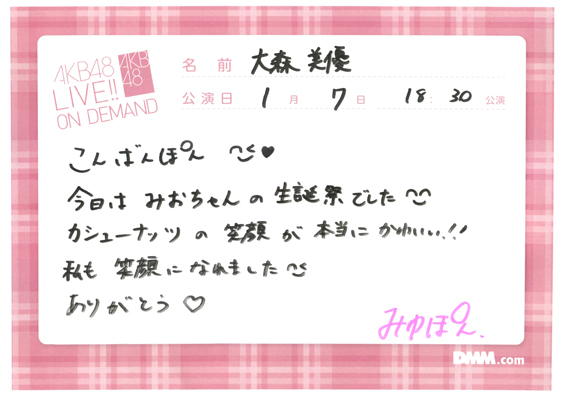 AKB48
LIVE!!
ON DEMAND
AKB
48
名前 大森美優
公演日 1月7日 18:30公演
こんばんぽん ♥
今日は みおちゃんの 生誕祭でした
カシューナッツの 笑顔が 本当に かわいい!!
私も 笑顔に なれました
ありがとう ♡
みゆぽん.
DMM.com